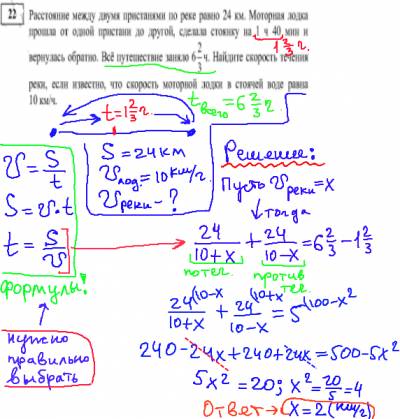 22 Расстояние между двумя пристанями по реке равно 24 км. Моторная лодка
прошла от одной пристани до другой, сделала стоянку на 1 ч 40 мин и
1 2/3 ч.
вернулась обратно. Всё путешествие заняло 6 2/3 ч. Найдите скорость течения
реки, если известно, что скорость моторной лодки в стоячей воде равна
10 км/ч.
t всего = 6 2/3 ч.
t = 1 2/3 ч.
S = 24 км
V лод. = 10 км/ч
V реки - ?
V = S/t
S = V·t
t = S/V
Формулы!
нужно
правильно
выбрать
Решение:
Пусть V реки = x
тогда
24/(10+x) + 24/(10-x) = 6 2/3 - 1 2/3
по теч. против теч.
24(10-x/(10+x) + 24(10+x/(10-x) = 5(100-x²
240-24x+240+24x=500-5x²
5x²=20; x²=20/5=4
Ответ → x=2(км/ч)